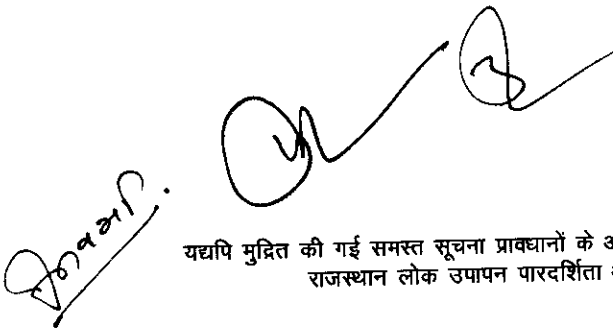 यद्यपि मुद्रित की गई समस्त सूचना प्रावधानों के
राजस्थान लोक उपापन पारदर्शिता